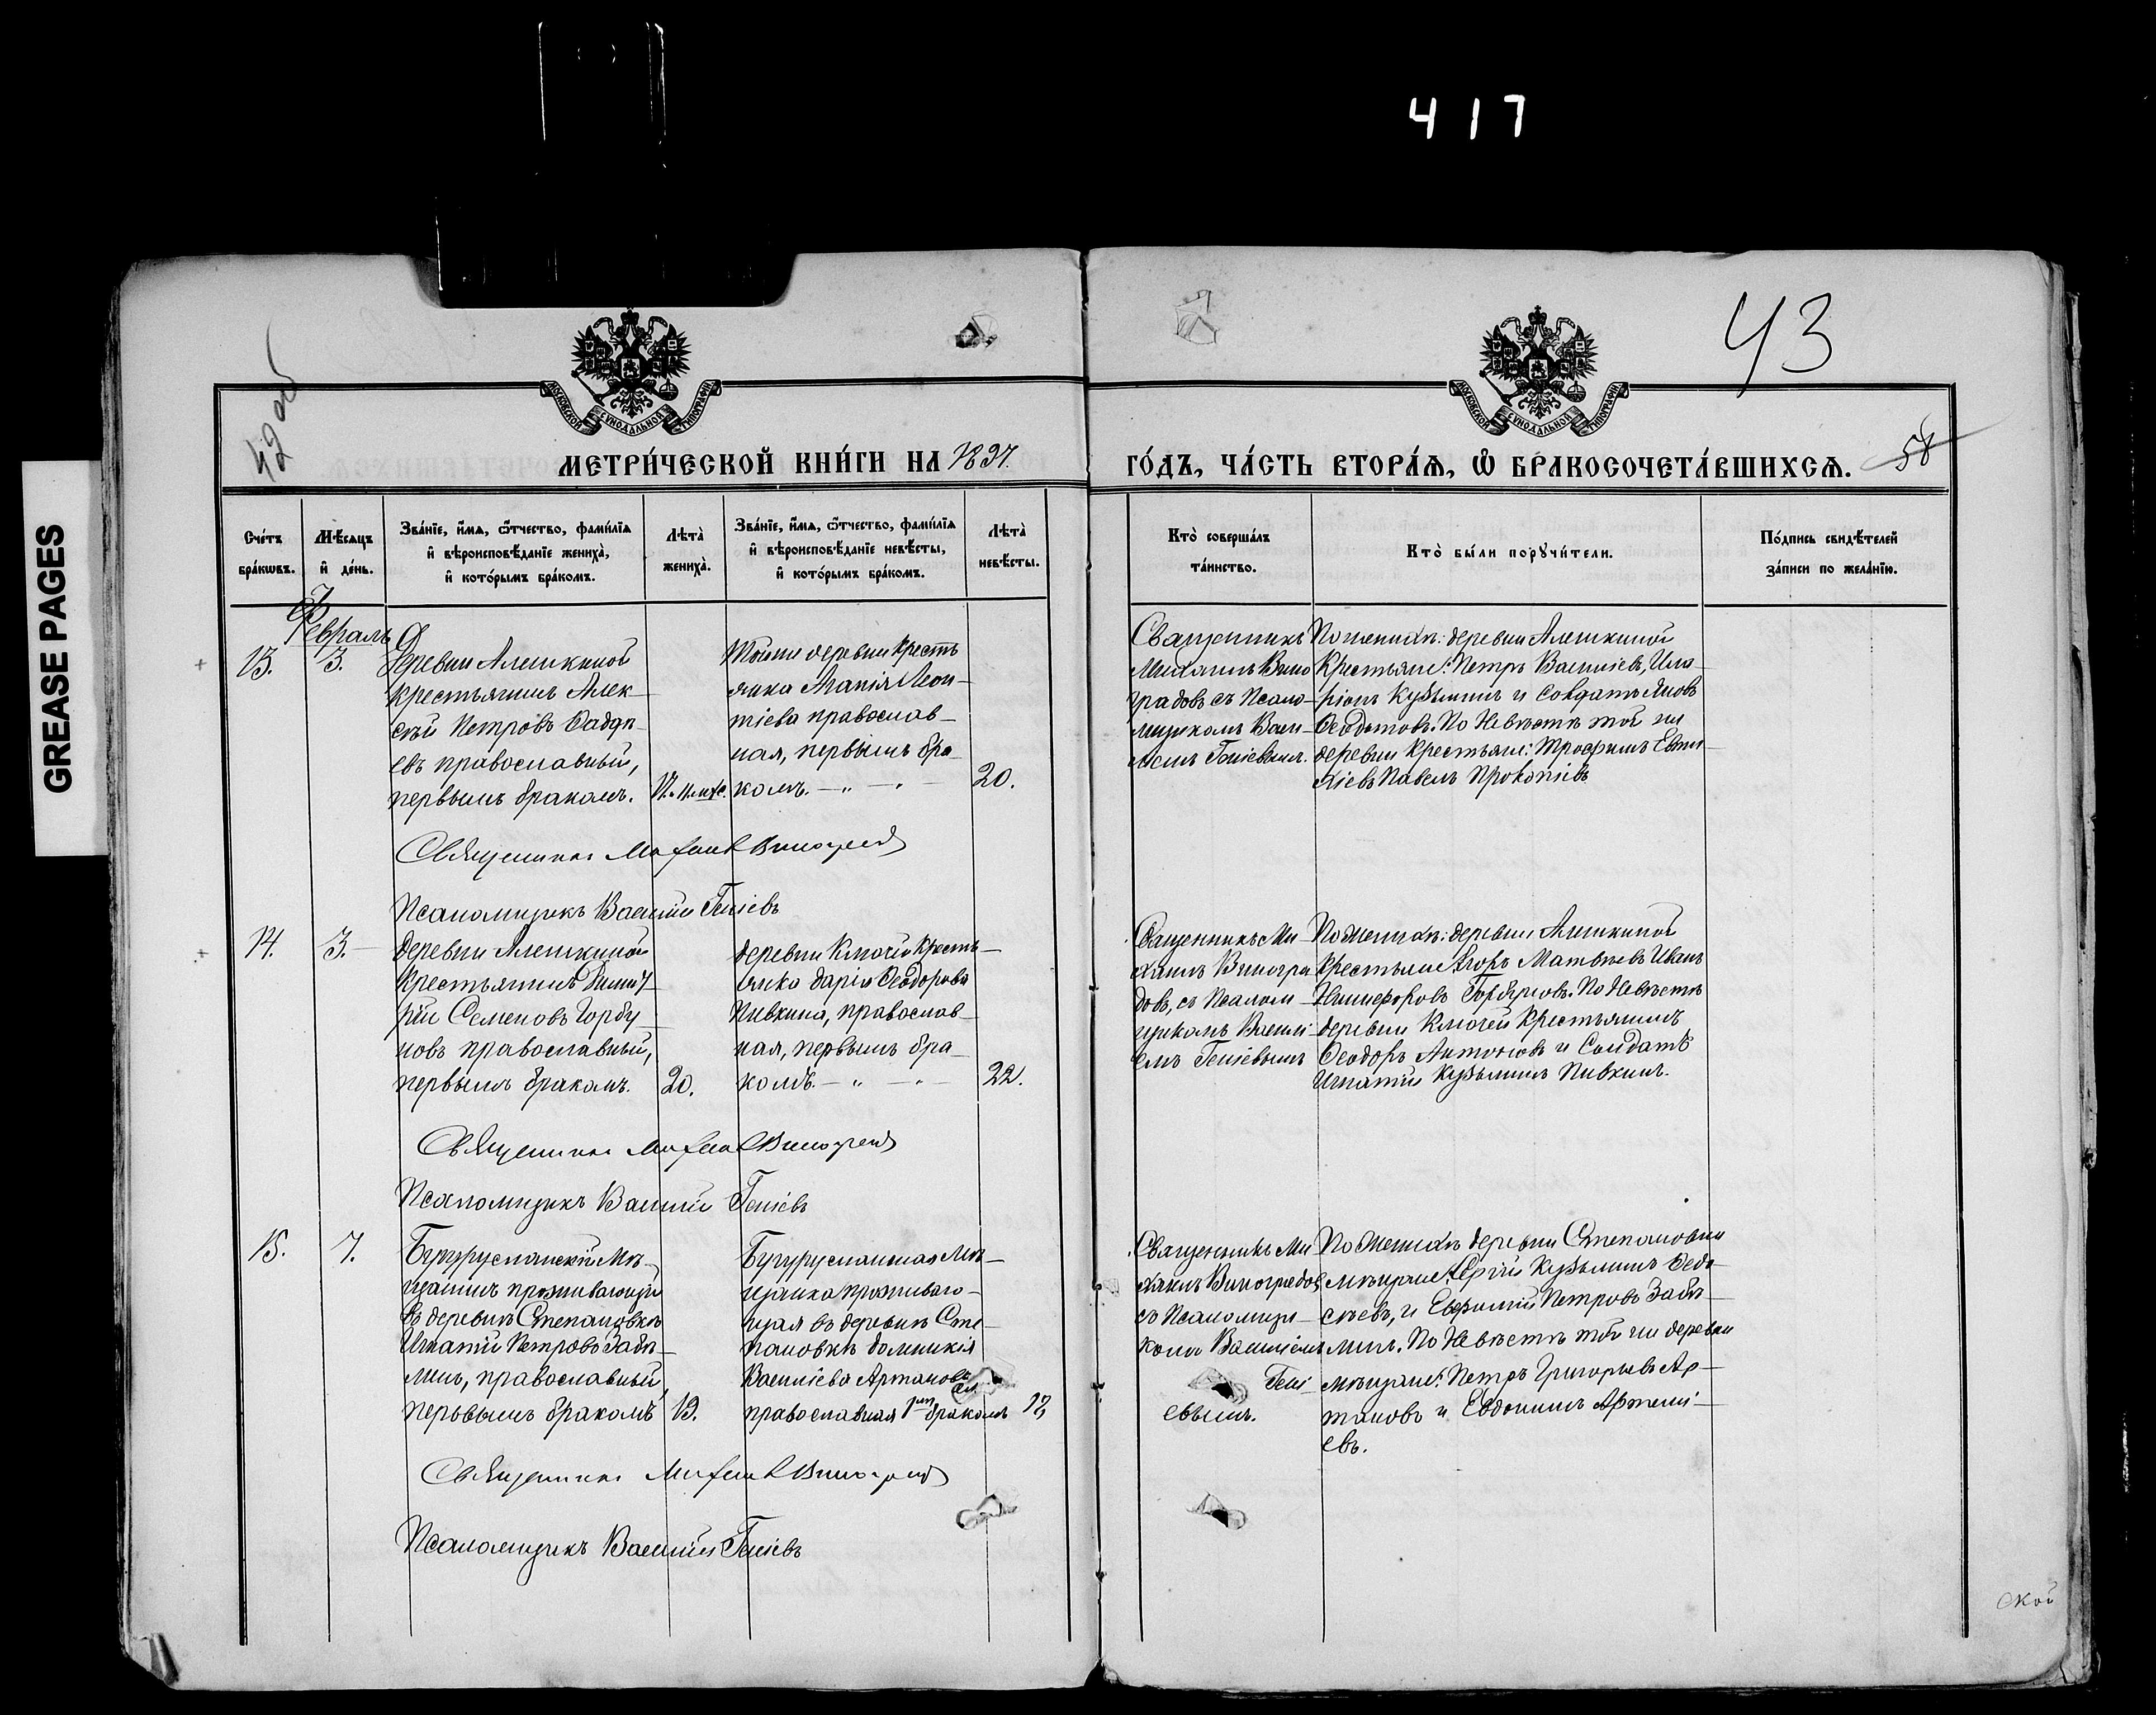 417
GREASE PAGES
43
42 об
58
МОСКОВСКОЙ СѴНОДАЛЬНОЙ ТИПОГРАФИ
МОСКОВСКОЙ СѴНОДАЛЬНОЙ ТИПОГРАФИ
МЕТРИ́ЧЕСКОЙ КНИ́ГИ НА 1897.
ГО́ДЪ, ЧА́СТЬ ВТОРА́Я, Ѿ БРАКОСОЧЕТА́ВШИХСЯ.
Сче́тъ бра́кѡвъ.
Мѣ́сяцъ и҆ де́нь.
Зва́нїе, и҆́мя, ѻ҆́тчество, фами́лїя и҆ вѣроисповѣ́данїе жениха̀, и҆ кото́рымъ бра́комъ.
Лѣта̀ жениха̀.
Зва́нїе, и҆́мя, ѻ҆́тчество, фами́лїя и҆ вѣроисповѣ́данїе невѣ́сты, и҆ кото́рымъ бра́комъ.
Лѣта̀ невѣ́сты.
Кто̀ соверша́лъ та́инство.
Кто̀ бы́ли порꙋчи́тели.
По́дпись свидѣ́телей за́писи по жела́нїю.
Февраль
13.
3.
Деревни Алешкиной
крестьянинъ Алек-
сѣй Петровъ
евъ православный,
первымъ бракомъ.
Тойже деревни Кресть
янка Марія Леон-
тіева православ-
ная, первымъ бра-
комъ. — „ — „ —
20.
Священникъ
Михаилъ Вино
градовъ съ Псало-
мщикомъ Васи-
ліемъ Геніевымъ.
По женихѣ: деревни Алешкиной
Крестьяне: Петръ Василіевъ, Ила-
ріонъ Кузьминъ и Солдатъ Яковъ
Ѳеодотовъ. По Невѣстѣ той же
деревни Крестьяне: Трофимъ Евти-
хіевъ Павелъ Прокопіевъ
Священникъ Михаилъ Виноградовъ
Псаломщикъ Василій Геніевъ
14.
3.
деревни Алешкиной
Крестьянинъ Димит-
рій Семеновъ Горбу-
новъ православный,
первымъ бракомъ.
20.
деревни Ключей Кресть-
янка Дарія Ѳеодорова
Пивкина, православ-
ная, первымъ бра-
комъ. — „ — „ —
22.
Священникъ Ми-
хаилъ Виногра
довъ, съ Псалом-
щикомъ Василі-
емъ Геніевымъ
По Женихѣ: деревни Алешкиной
Крестьяне Егоръ Матвѣевъ Иванъ
Никифоровъ Горбуновъ. По Невѣстѣ
деревни Ключей Крестьянинъ
Ѳеодоръ Антоновъ и Солдатъ
Игнатій Кузьминъ Пивкинъ.
Священникъ Михаилъ Виноградовъ
Псаломщикъ Василій Геніевъ
15.
7.
Бугурусланскій Мѣ-
щанинъ проживающій
въ деревнѣ Степановкѣ
Игнатій Петровъ Забѣ-
линъ, православный,
первымъ бракомъ
19.
Бугурусланская Мѣ-
щанка проживаю-
щая въ деревнѣ Сте-
пановкѣ Домникія
Василіева Артанова
православная 1мъ бракомъ
Священникъ Ми
хаилъ Виноградовъ
съ Псаломщи-
комъ Василіемъ
Гені-
евымъ.
По Женихѣ деревни Степановки
мѣщане: Сергій Кузьминъ Ѳедо-
сѣевъ, и Евфимій Петровъ Забѣ-
линъ. По Невѣстѣ той же деревни
мѣщане: Петръ Григорьевъ Ар-
тановъ и Евдокимъ Артемі-
евъ.
Священникъ Михаилъ Виноградовъ
Псаломщикъ Василій Геніевъ
ской